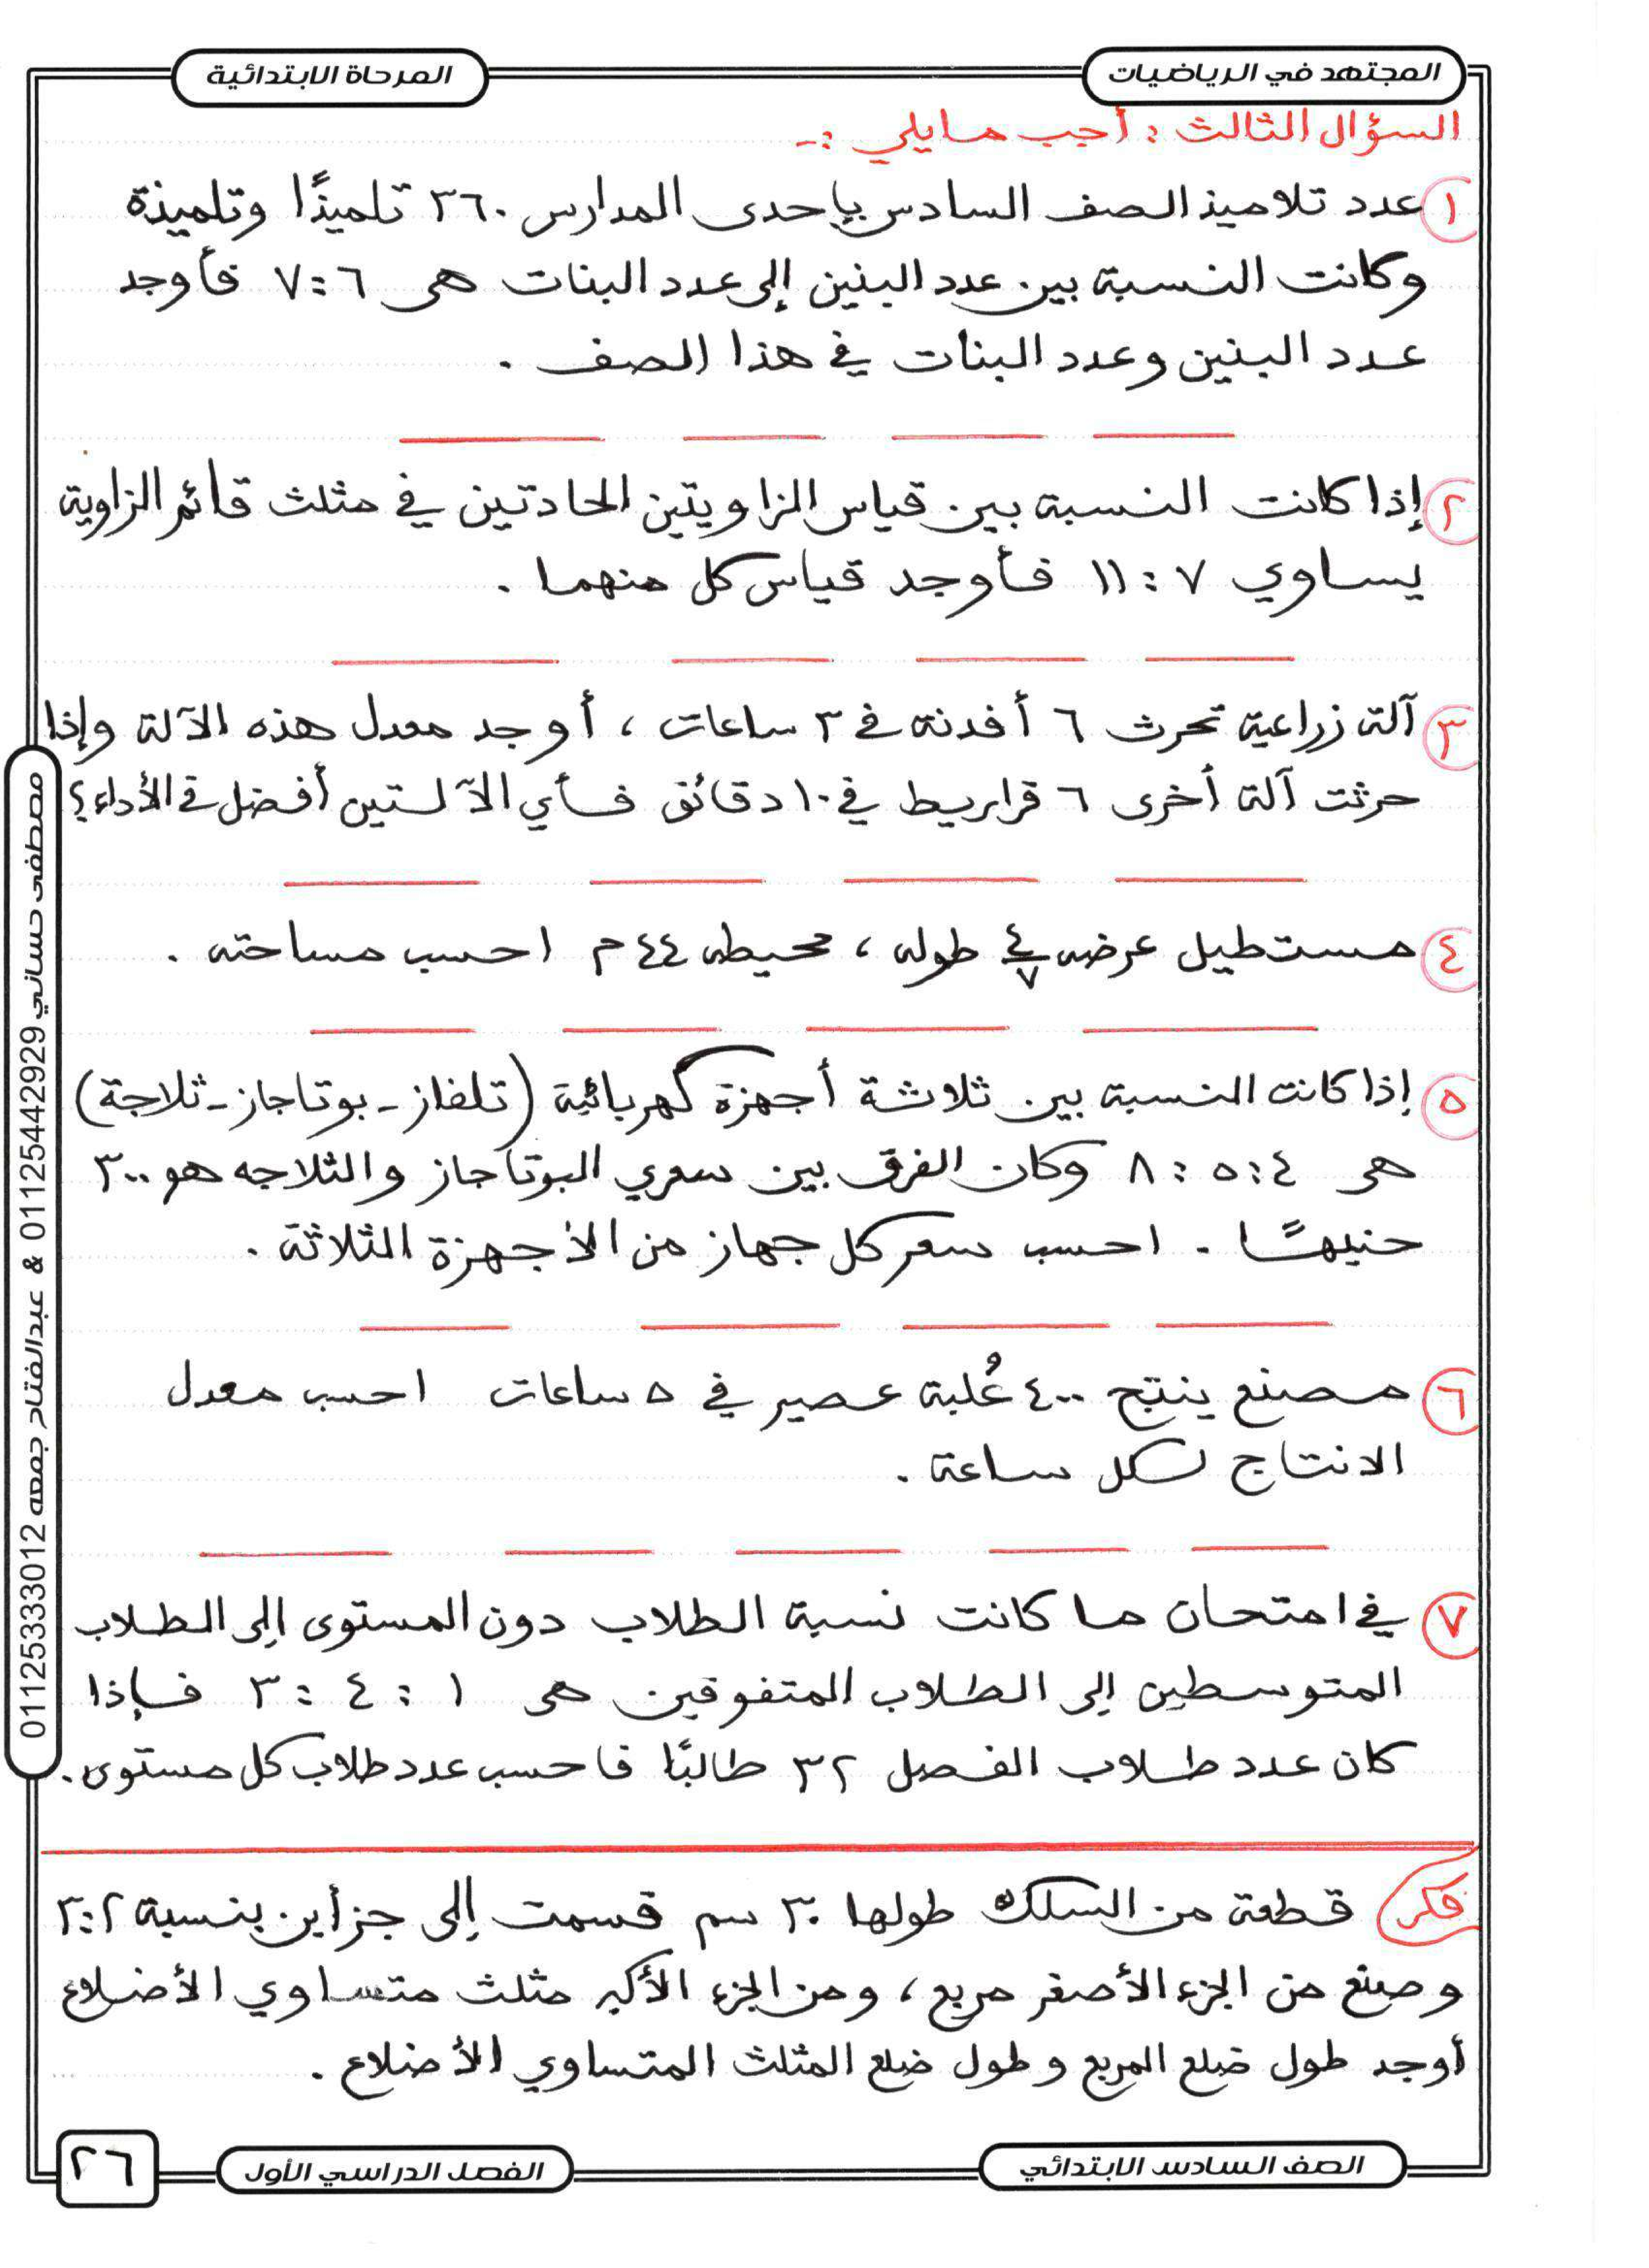 المجتهد في الرياضيات
المرحلة الابتدائية
السؤال الثالث : أجب مايلي :-
١ عدد تلاميذ الصف السادس بإحدى المدارس ٣٦٠ تلميذًا وتلميذة
وكانت النسبة بين عدد البنين إلى عدد البنات هى ٦ : ٧ فأوجد
عدد البنين وعدد البنات في هذا الصف .
٢ إذا كانت النسبة بين قياس الزاويتين الحادتين في مثلث قائم الزاوية
يساوي ٧ : ١١ فأوجد قياس كل منهما .
٣ آلة زراعية تحرث ٦ أفدنة في ٣ ساعات ، أوجد معدل هذه الآلة وإذا
حرثت آلة أخرى ٦ قراريط في ١٠ دقائق فأي الآلستين أفضل في الأداء ؟
٤ مستطيل عرضه ٤/٧ طوله ، محيطه ٤٤ م احسب مساحته .
٥ إذا كانت النسبة بين ثلاثة أجهزة كهربائية (تلفاز - بوتاجاز - ثلاجة)
هى ٤ : ٥ : ٨ وكان الفرق بين سعري البوتاجاز والثلاجه هو ٣٠٠
جنيهًا . احسب سعر كل جهاز من الأجهزة الثلاثة .
٦ مصنع ينتج ٤٠٠ عُلبة عصير في ٥ ساعات احسب معدل
الانتاج لكل ساعة .
٧ في امتحان ما كانت نسبة الطلاب دون المستوى إلى الطلاب
المتوسطين إلى الطلاب المتفوقين هى ١ : ٤ : ٣ فإذا
كان عدد طلاب الفصل ٣٢ طالبًا فاحسب عدد طلاب كل مستوى .
فكر قطعة من السلك طولها ٣٠ سم قسمت إلى جزأين بنسبة ٢ : ٣
وصنع من الجزء الأصغر مربع ، ومن الجزء الأكبر مثلث متساوي الأضلاع
أوجد طول ضلع المربع وطول ضلع المثلث المتساوي الأضلاع .
مصطفى حساني 01125442929 & عبدالفتاح جمعه 01125333012
الصف السادس الابتدائي
الفصل الدراسي الأول
٢٦